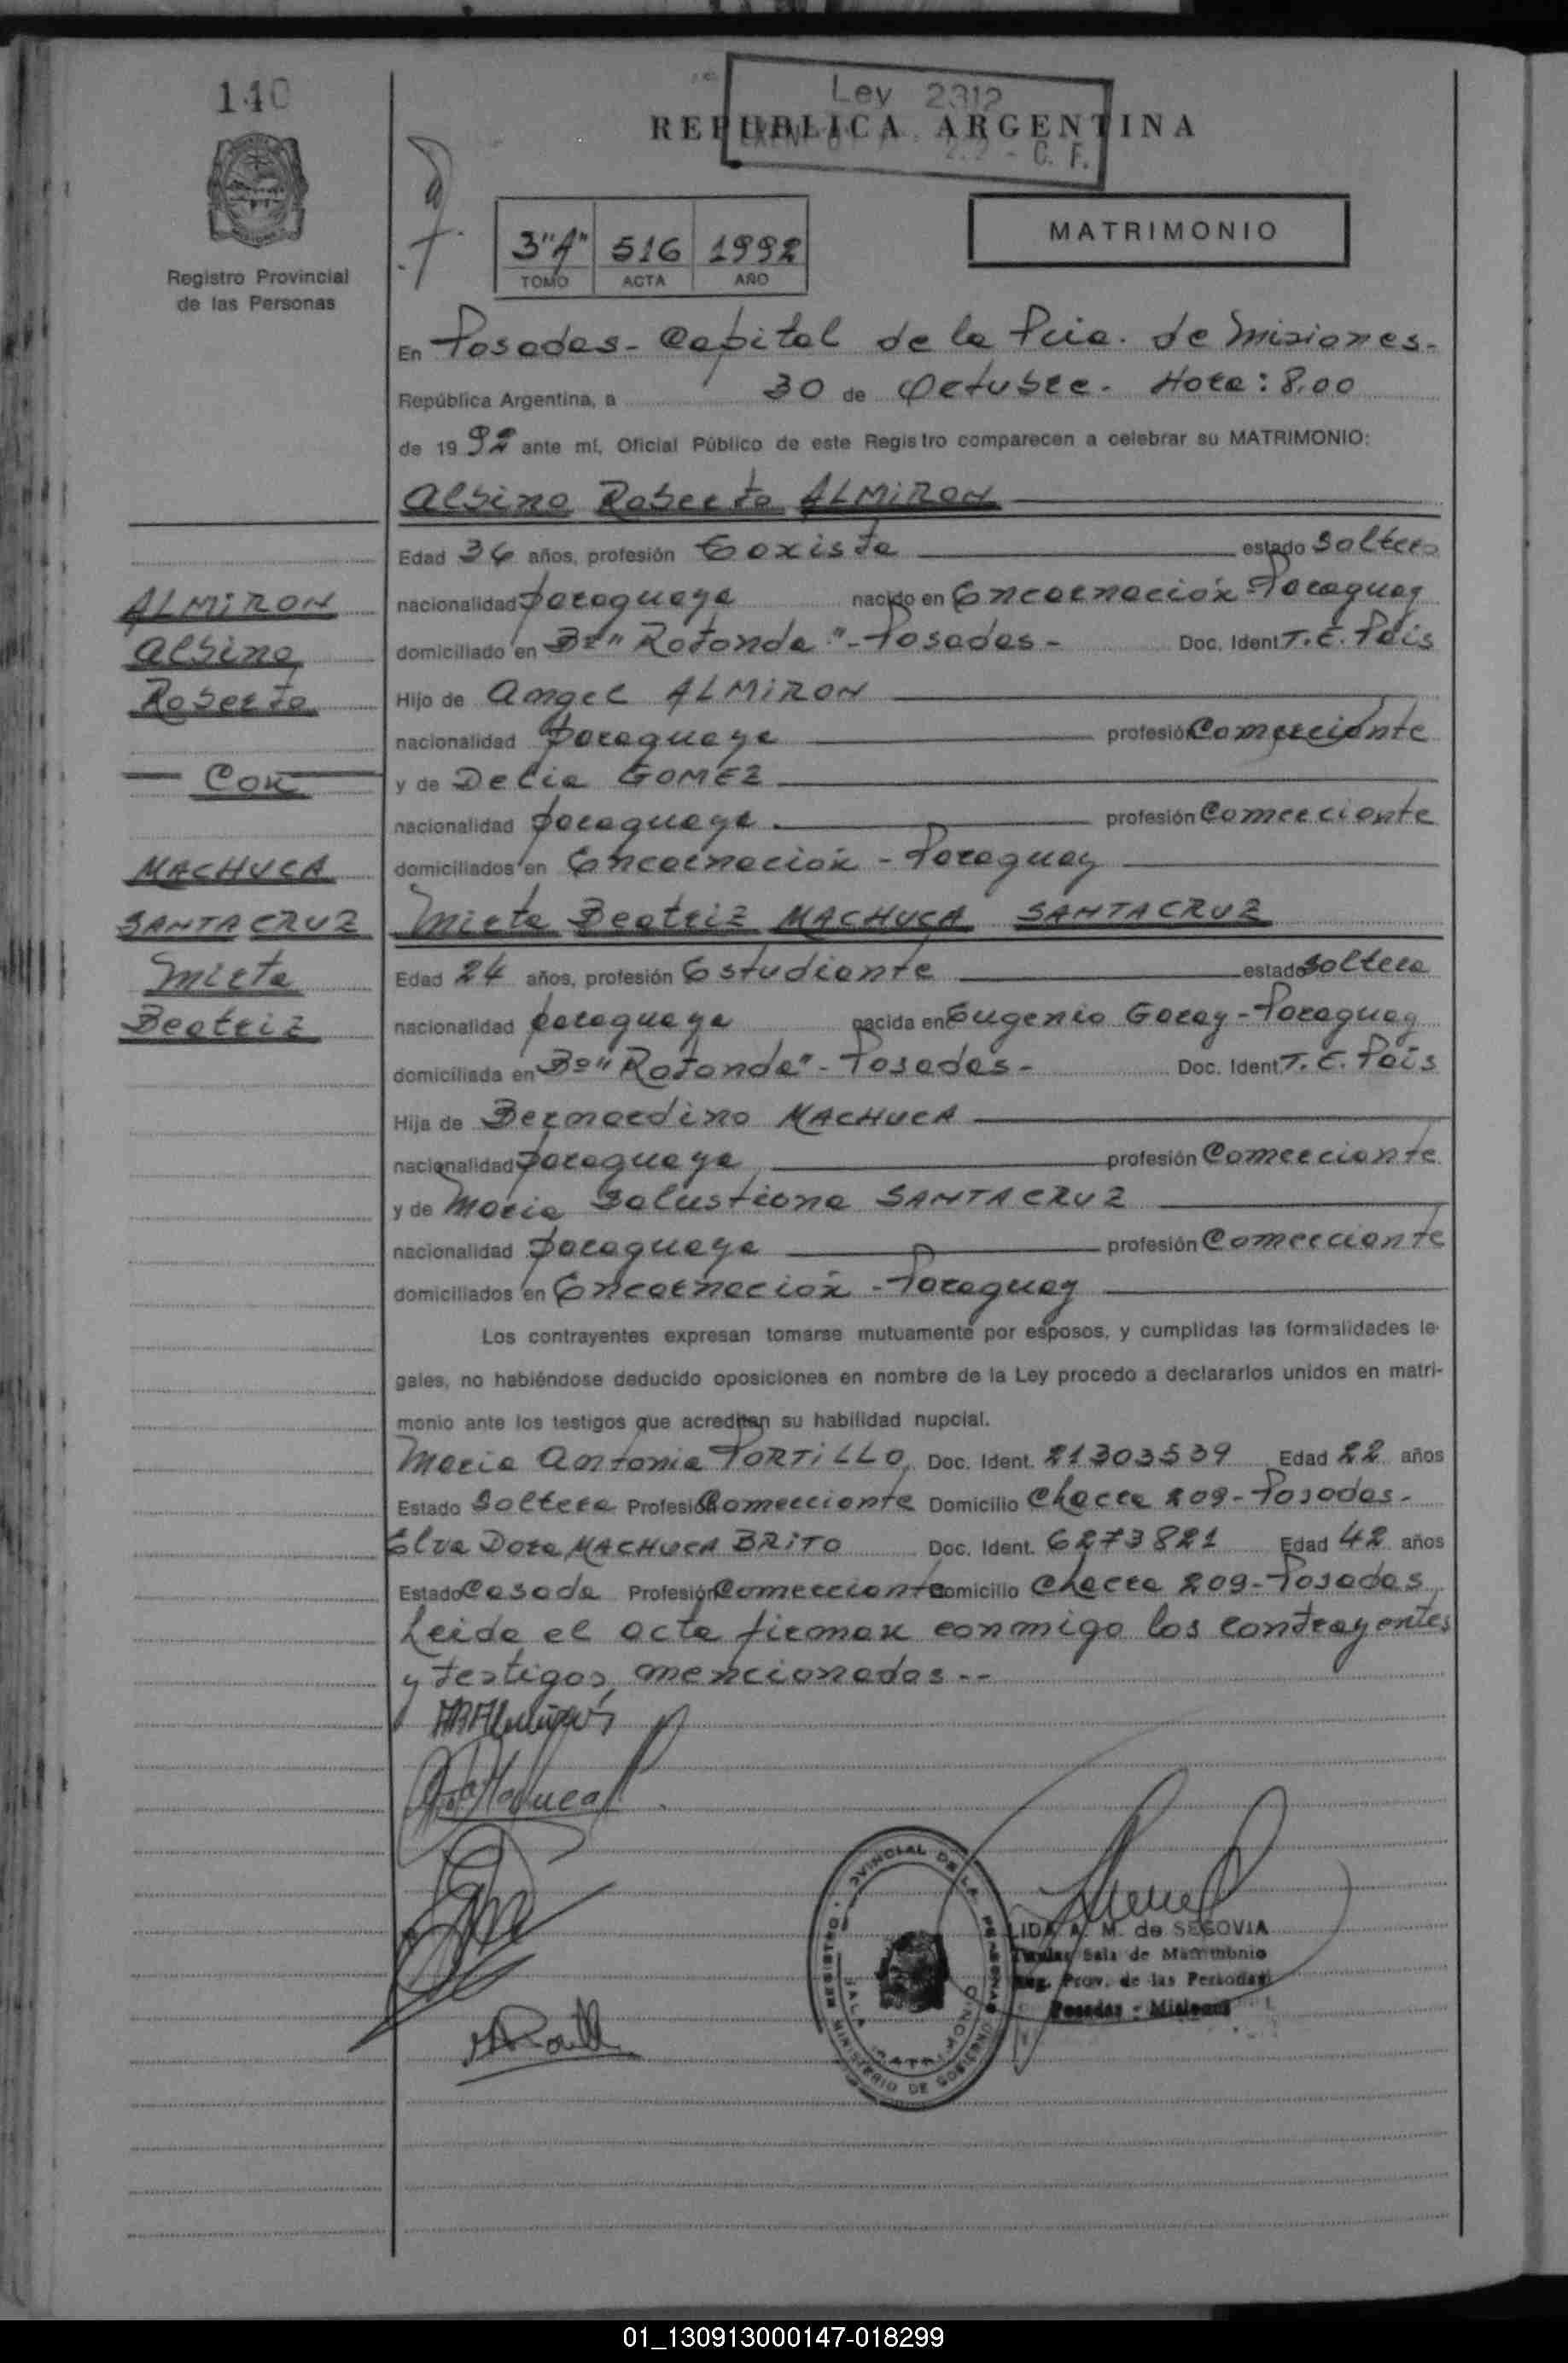 140
Ley 2312
REPUBLICA ARGENTINA
C. F.
Registro Provincial
de las Personas
3"A" 516 1992
TOMO ACTA AÑO
MATRIMONIO
En Posadas - Capital de la Pcia. de Misiones.-
República Argentina, a 30 de Octubre. Hora: 8,00
de 1992 ante mí, Oficial Público de este Registro comparecen a celebrar su MATRIMONIO:
Albino Roberto ALMIRON
Edad 34 años, profesión Taxista estado Soltero
ALMIRON
Albino
Roberto
Con
MACHUCA
SANTACRUZ
Mirta
Beatriz
nacionalidad paraguaya nacido en Encarnación - Paraguay
domiciliado en Bº "Rotonda" - Posadas - Doc. Ident. T. E. País
Hijo de Angel ALMIRON
nacionalidad paraguaya profesión Comerciante
y de Delia GOMEZ
nacionalidad paraguaya profesión Comerciante
domiciliados en Encarnación - Paraguay
Mirta Beatriz MACHUCA SANTACRUZ
Edad 24 años, profesión Estudiante estado Soltera
nacionalidad paraguaya nacida en Eugenio Garay - Paraguay
domiciliada en Bº "Rotonda" - Posadas - Doc. Ident. T. E. País
Hija de Bernardino MACHUCA
nacionalidad paraguaya profesión Comerciante
y de María Salustiana SANTACRUZ
nacionalidad paraguaya profesión Comerciante
domiciliados en Encarnación - Paraguay
Los contrayentes expresan tomarse mutuamente por esposos, y cumplidas las formalidades le-
gales, no habiéndose deducido oposiciones en nombre de la Ley procedo a declararlos unidos en matri-
monio ante los testigos que acreditan su habilidad nupcial.
María Antonia PORTILLO, Doc. Ident. 21303539 Edad 22 años
Estado Soltera Profesión Comerciante Domicilio Chacra 209 - Posadas.-
Elva Dora MACHUCA BRITO Doc. Ident. 6273821 Edad 42 años
Estado Casada Profesión Comerciante Domicilio Chacra 209 - Posadas
Leida el acta firman conmigo los contrayentes
y testigos mencionados.--
LIDA A. M. de SEGOVIA
Titular Sala de Matrimonio
Reg. Prov. de las Personas
Posadas - Misiones
REGISTRO PROVINCIAL DE LAS PERSONAS
MINISTERIO DE GOBIERNO
SALA MATRIMONIO
01_130913000147-018299